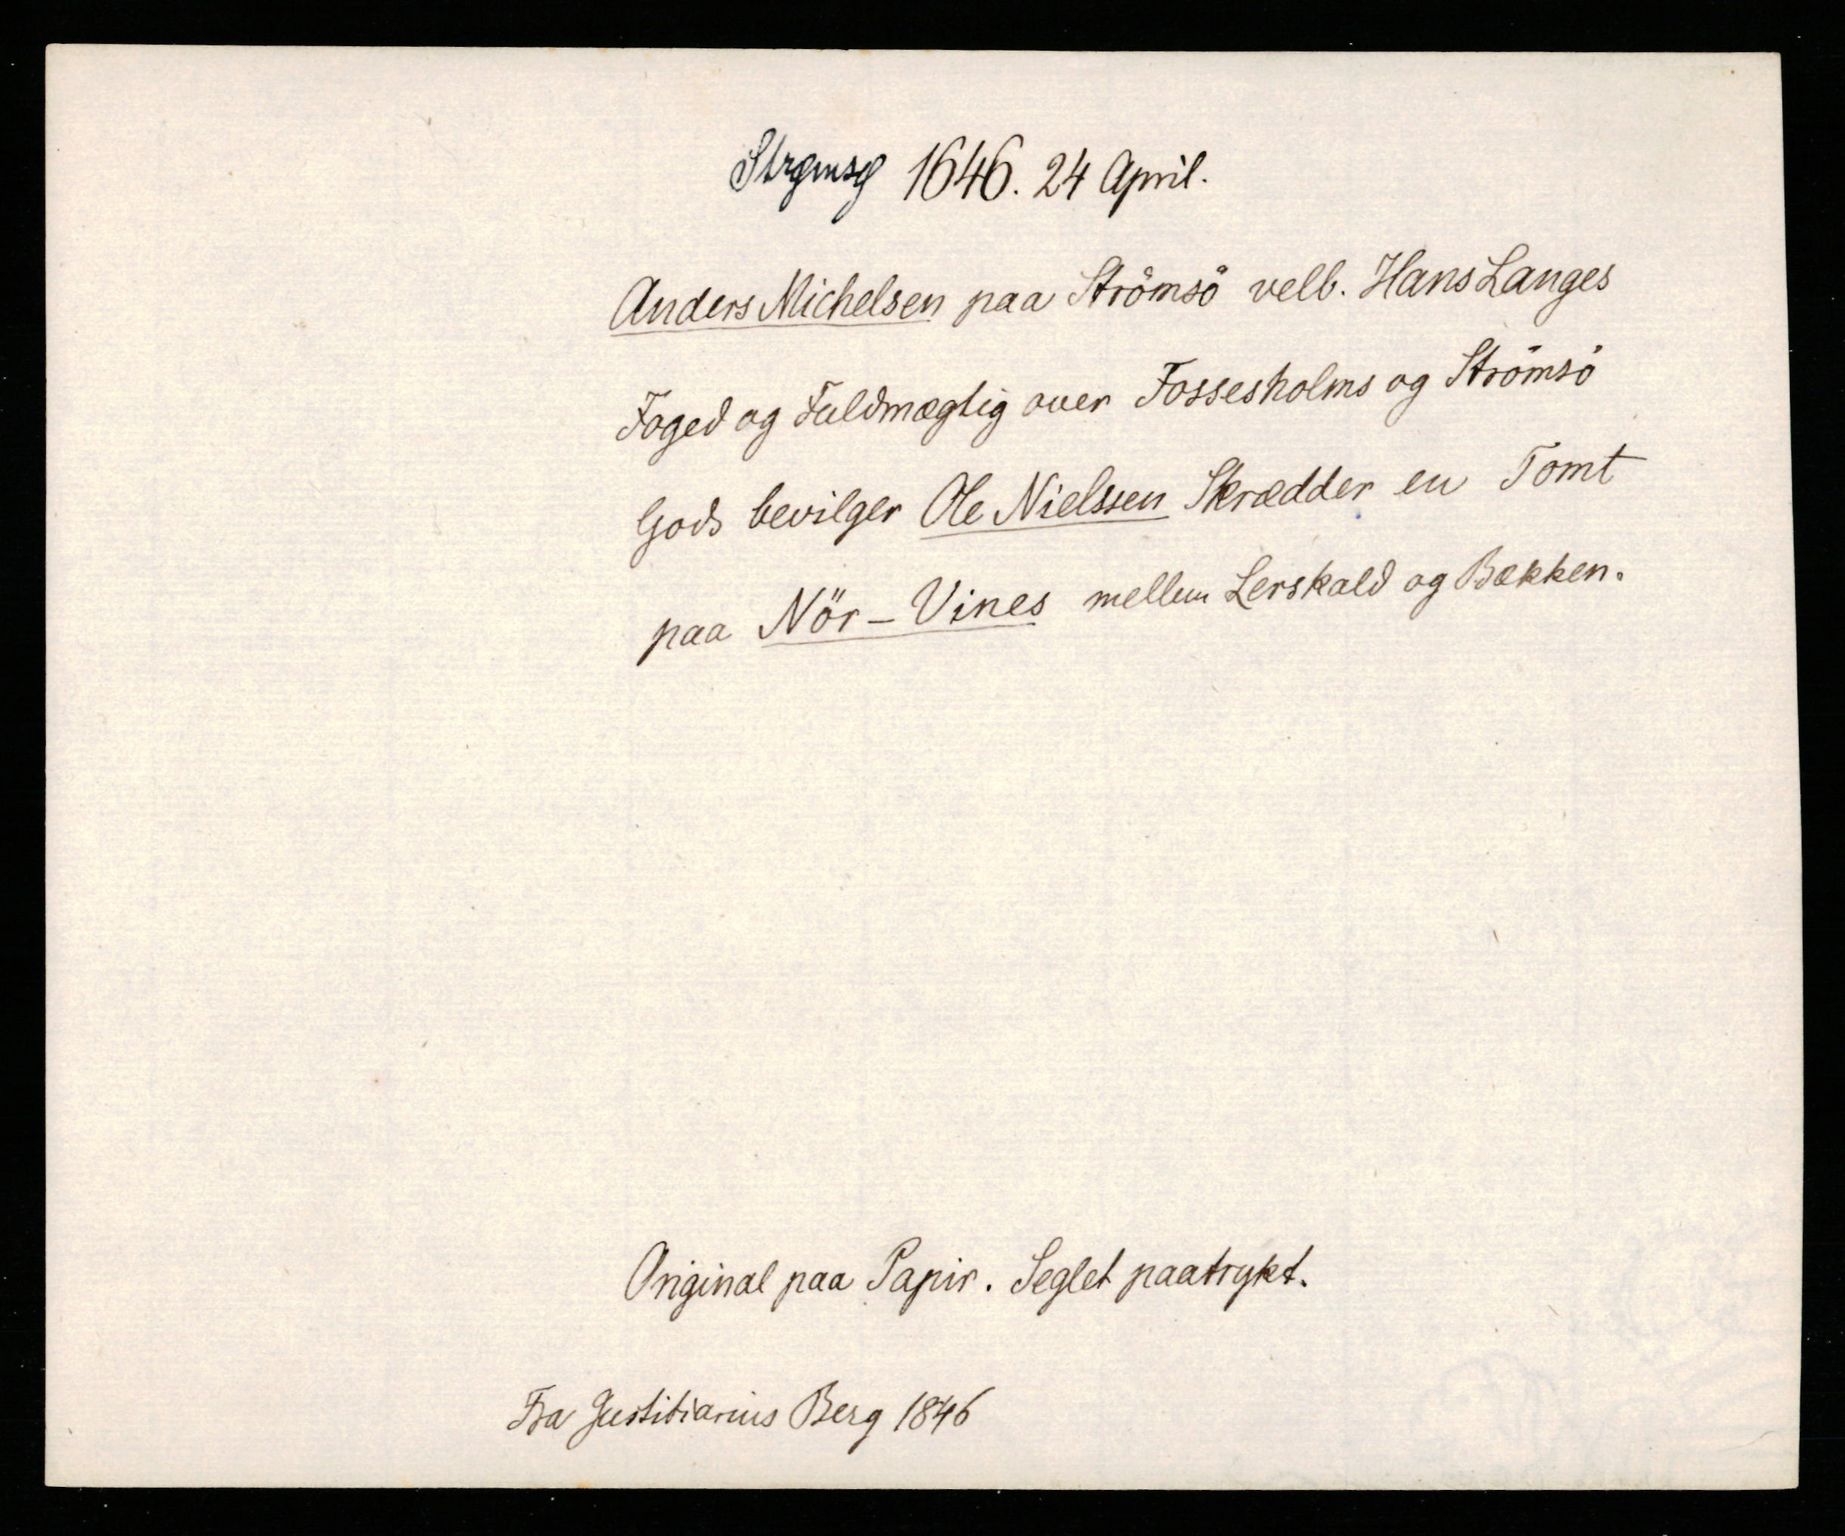 Strømsø 1646. 24 April.
Anders Michelsen paa Strömsö velb. Hans Langes
Foged og Fuldmægtig over Fossesholms og Strömsö
Gods bevilger Ole Nielssen Skrædder en Tomt
paa Nör-Vines mellem Lerskald og Bækken.
Original paa Papir. Seglet paatrykt.
Fra Justitiarius Berg 1846